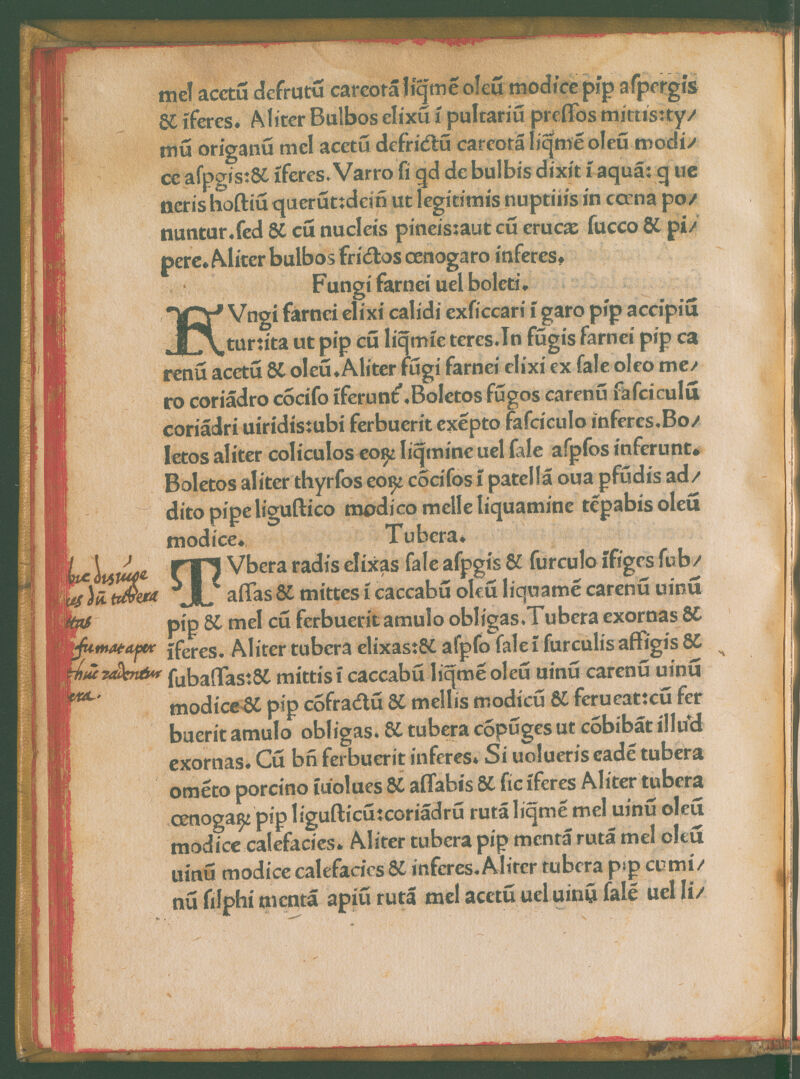 mel acetū defrutū careotā liq̄mē oleū modice pip aſpergis
& īferes. Aliter Bulbos elixū ī pultariū preſſos mittis:ty/
mū origanū mel acetū defrictū careotā liq̄mē oleū modi/
ce aſpgis:& īferes. Varro ſi qd de bulbis dixit ī aquā: q ue
neris hoſtiū querūt:dein̄ ut legitimis nuptiis in cœna po/
nuntur.ſed & cū nucleis pineis:aut cū erucæ ſucco & pi/
pere. Aliter bulbos frictos œnogaro inferes.
Fungi farnei uel boleti.
FVngi farnei elixi calidi exſiccari ī garo pip accipiū
tur:ita ut pip cū liq̄mīe teres. In fūgis farnei pip ca
renū acetū & oleū. Aliter fūgi farnei elixi ex ſale oleo me/
ro coriādro cōciſo īferunt́. Boletos fūgos carenū faſciculū
coriādri uiridis:ubi ferbuerit exēpto faſciculo inferes. Bo/
letos aliter coliculos eoꝝ liq̄mine uel ſale aſpſos inferunt.
Boletos aliter thyrſos eoꝝ cōciſos ī patellā oua pfūdis ad/
dito pipe liguſtico modico melle liquamine tēpabis oleū
modice. Tubera.
TVbera radis elixas ſale aſpgis & ſurculo īfiges ſub/
aſſas & mittes ī caccabū oleū liquamē carenū uinū
pip & mel cū ferbuerit amulo obligas. Tubera exornas &
īferes. Aliter tubera elixas:& aſpſo ſale ī ſurculis affigis &
ſubaſſas:& mittis ī caccabū liq̄mē oleū uinū carenū uinū
modice & pip cōfractū & mellis modicū & ferueat:cū fer
buerit amulo obligas. & tubera cōpūges ut cōbibāt illud
exornas. Cū bn̄ ferbuerit inferes. Si uolueris eadē tubera
omēto porcino īuolues & aſſabis & ſic īferes Aliter tubera
œnogaꝝ pip liguſticū:coriādrū rutā liq̄mē mel uinū oleū
modice calefacies. Aliter tubera pip mentā rutā mel oleū
uinū modice calefacies & inferes. Aliter tubera pip cumi/
nū ſilphi mentā apiū rutā mel acetū uel uinū ſalē uel li/